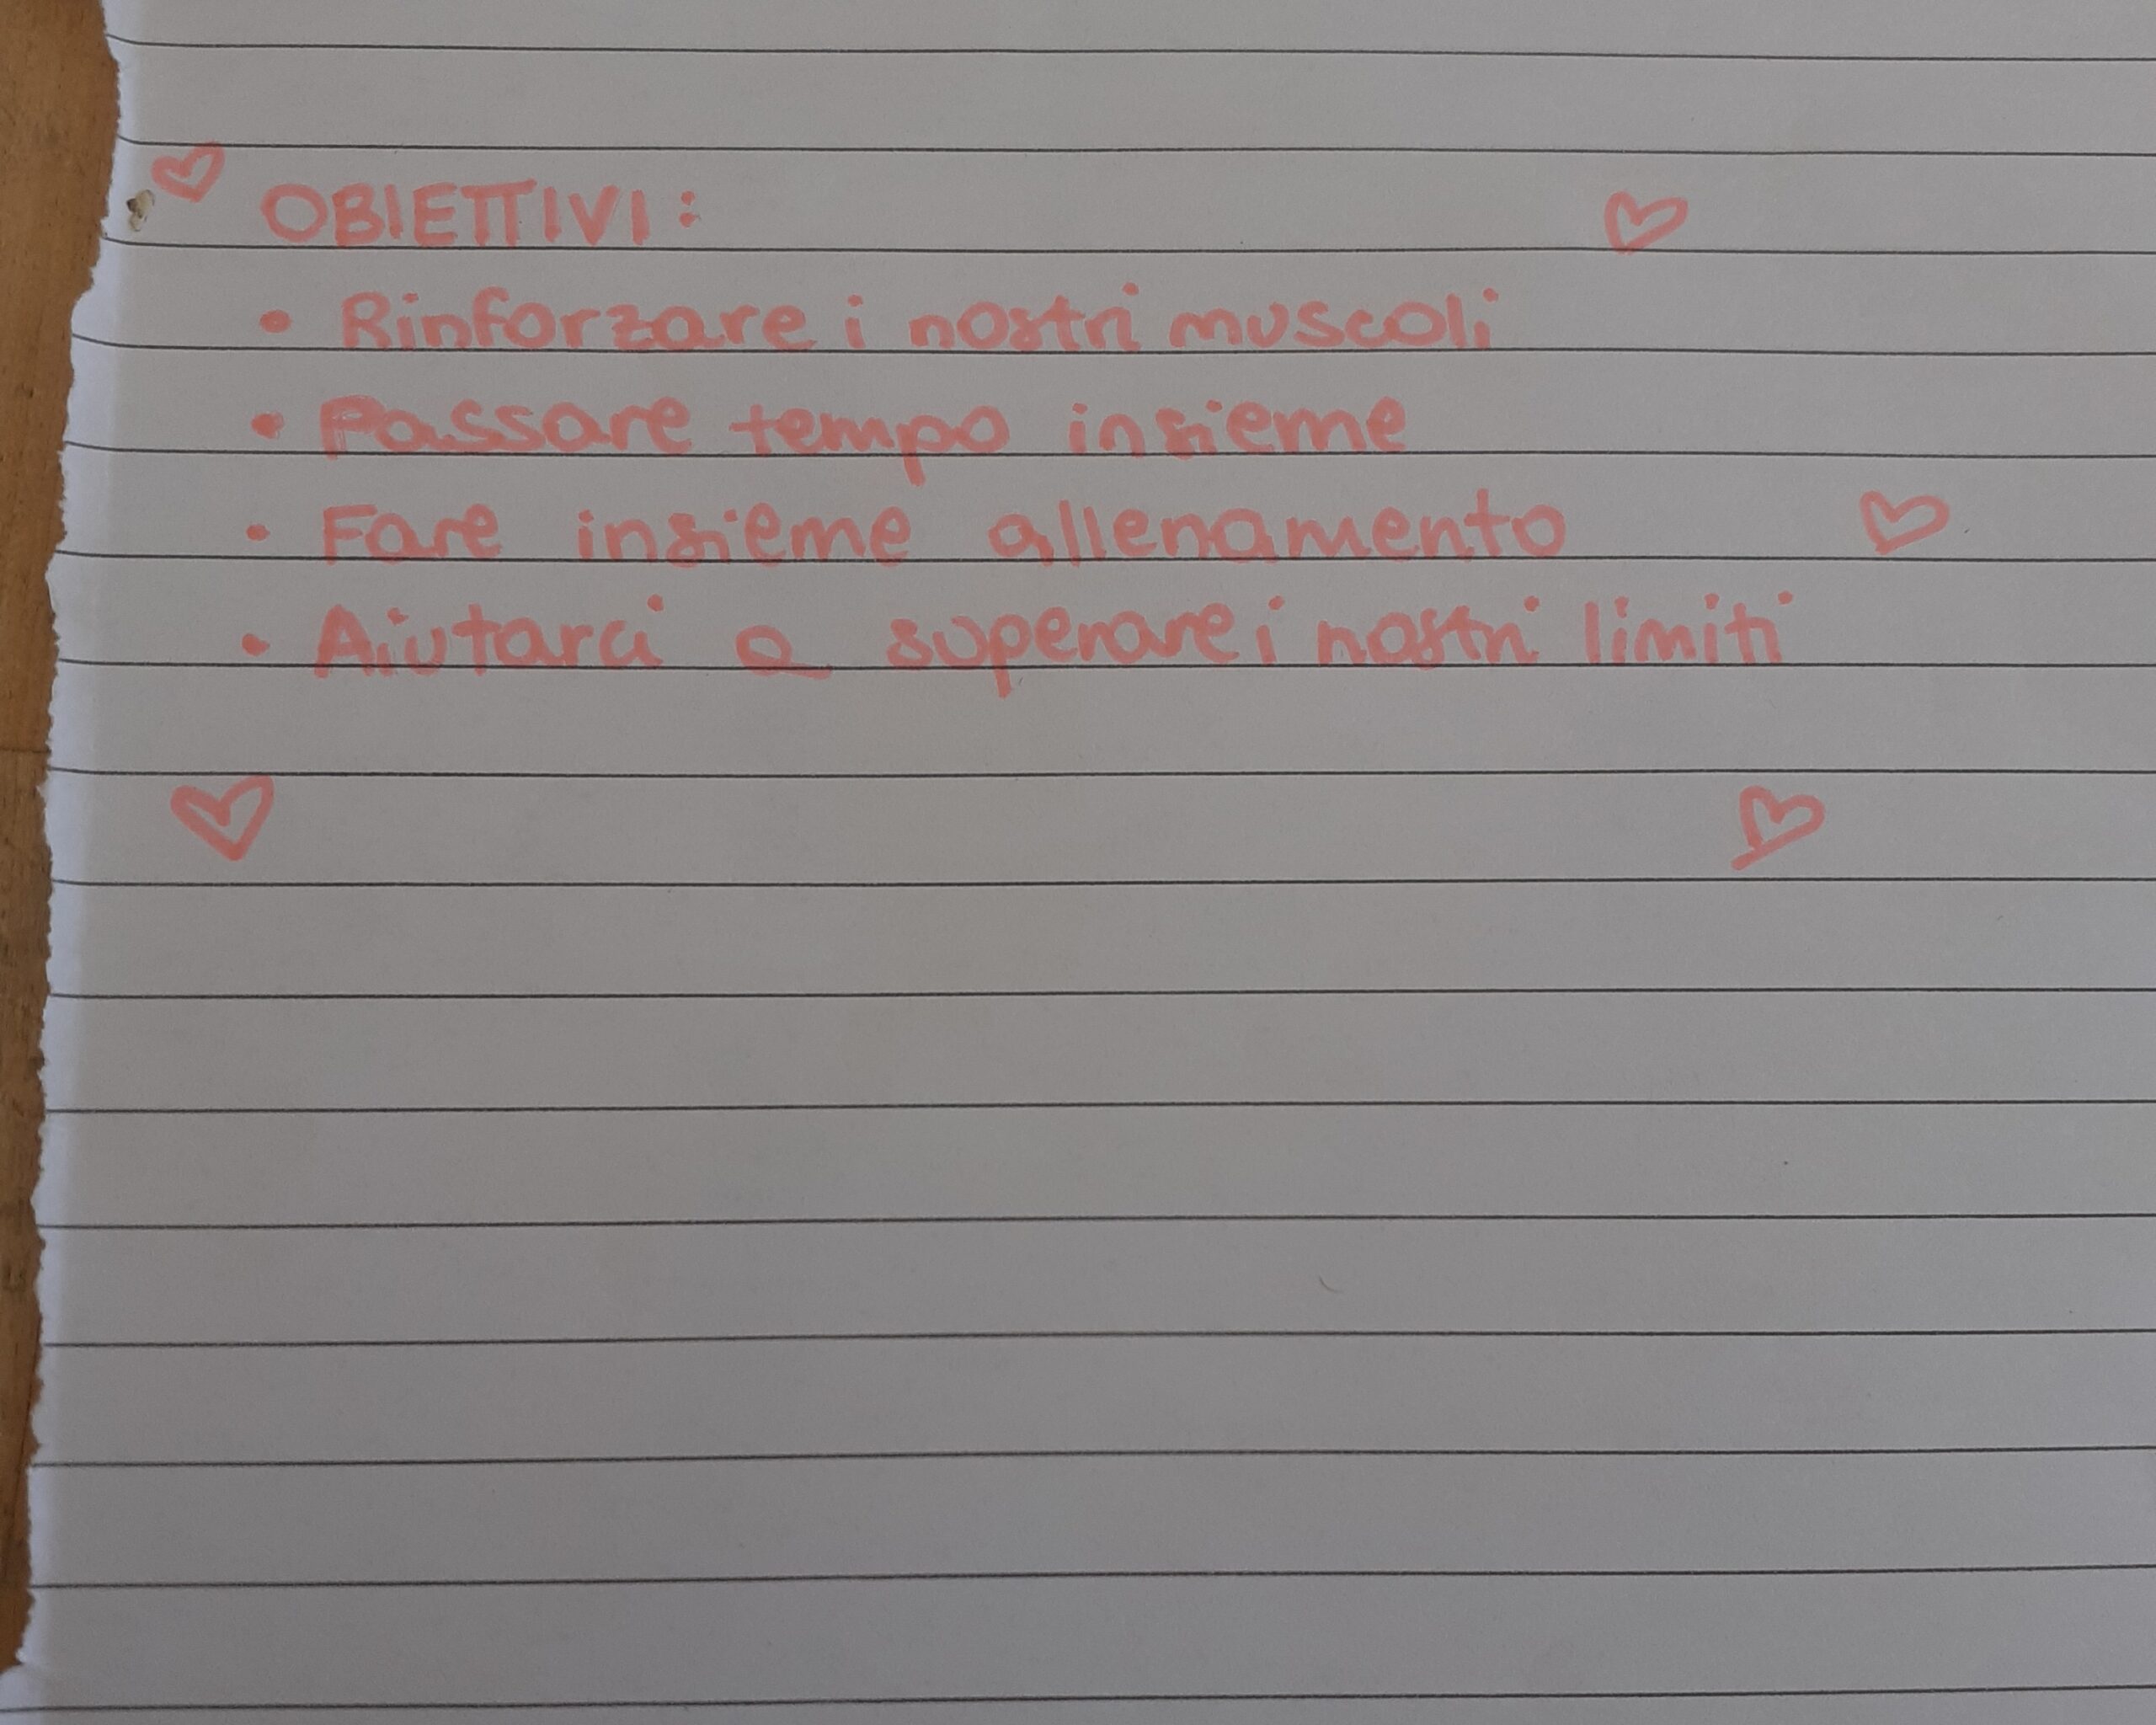 OBIETTIVI:
• Rinforzare i nostri muscoli
• Passare tempo insieme
• Fare insieme allenamento
• Aiutarci a superare i nostri limiti